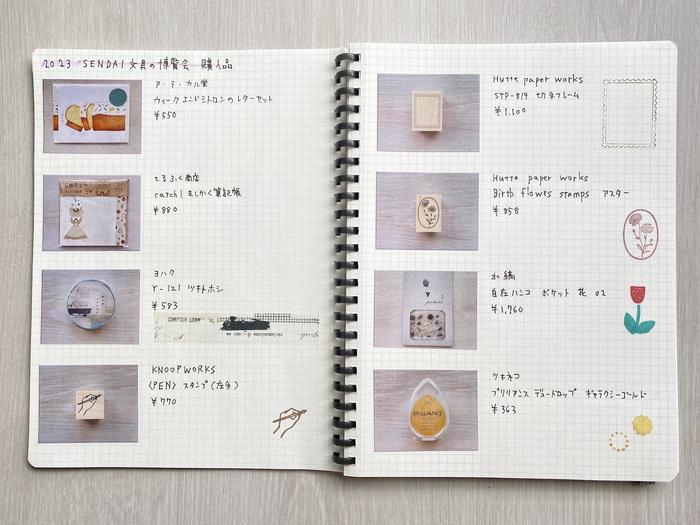 2023 SENDAI 文具の博覧会 購入品
ア・テ・カル堂
ウィークエンドシトロンのレターセット
¥550
てるふく商店
catch! ましかく筆記帳
¥880
ヨハク
Y-121 ツキトホシ
¥583
COMPTOIR COMM
KNOOPWORKS
〈PEN〉スタンプ(左手)
¥770
Hutte paper works
STP-819 切手フレーム
¥1.100
Hutte paper works
Birth flowrs stamps アスター
¥858
水縞
自在ハンコ ポケット 花 02
¥1,760
ツキネコ
ブリリアンス デュードロップ ギャラクシーゴールド
¥363
catch
BRILLIANCE